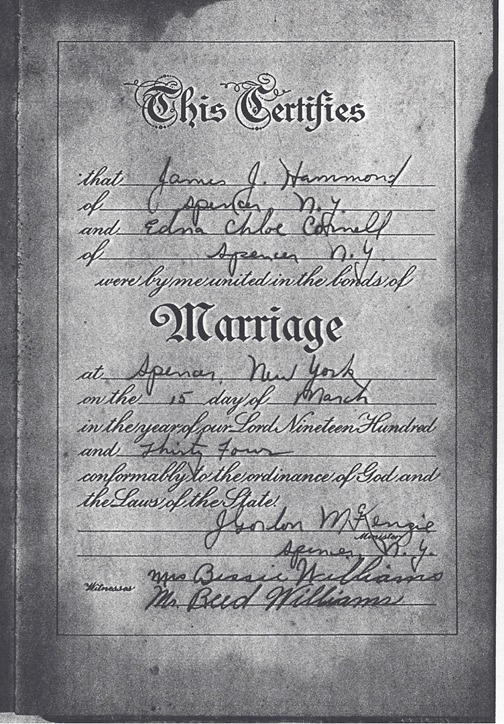 This Certifies
that James J. Hammond
of Spencer, N.Y.
and Edna Chloe Cornell
of Spencer N.Y.
were by me united in the bonds of
Marriage
at Spencer, New York
on the 15 day of March
in the year of our Lord Nineteen Hundred
and Thirty Four
conformably to the ordinance of God and
the Laws of the State.
J Gordon McKenzie
Minister
Spencer, N.Y.
Witnesses Mrs Bessie Williams
Mr. Reed Williams